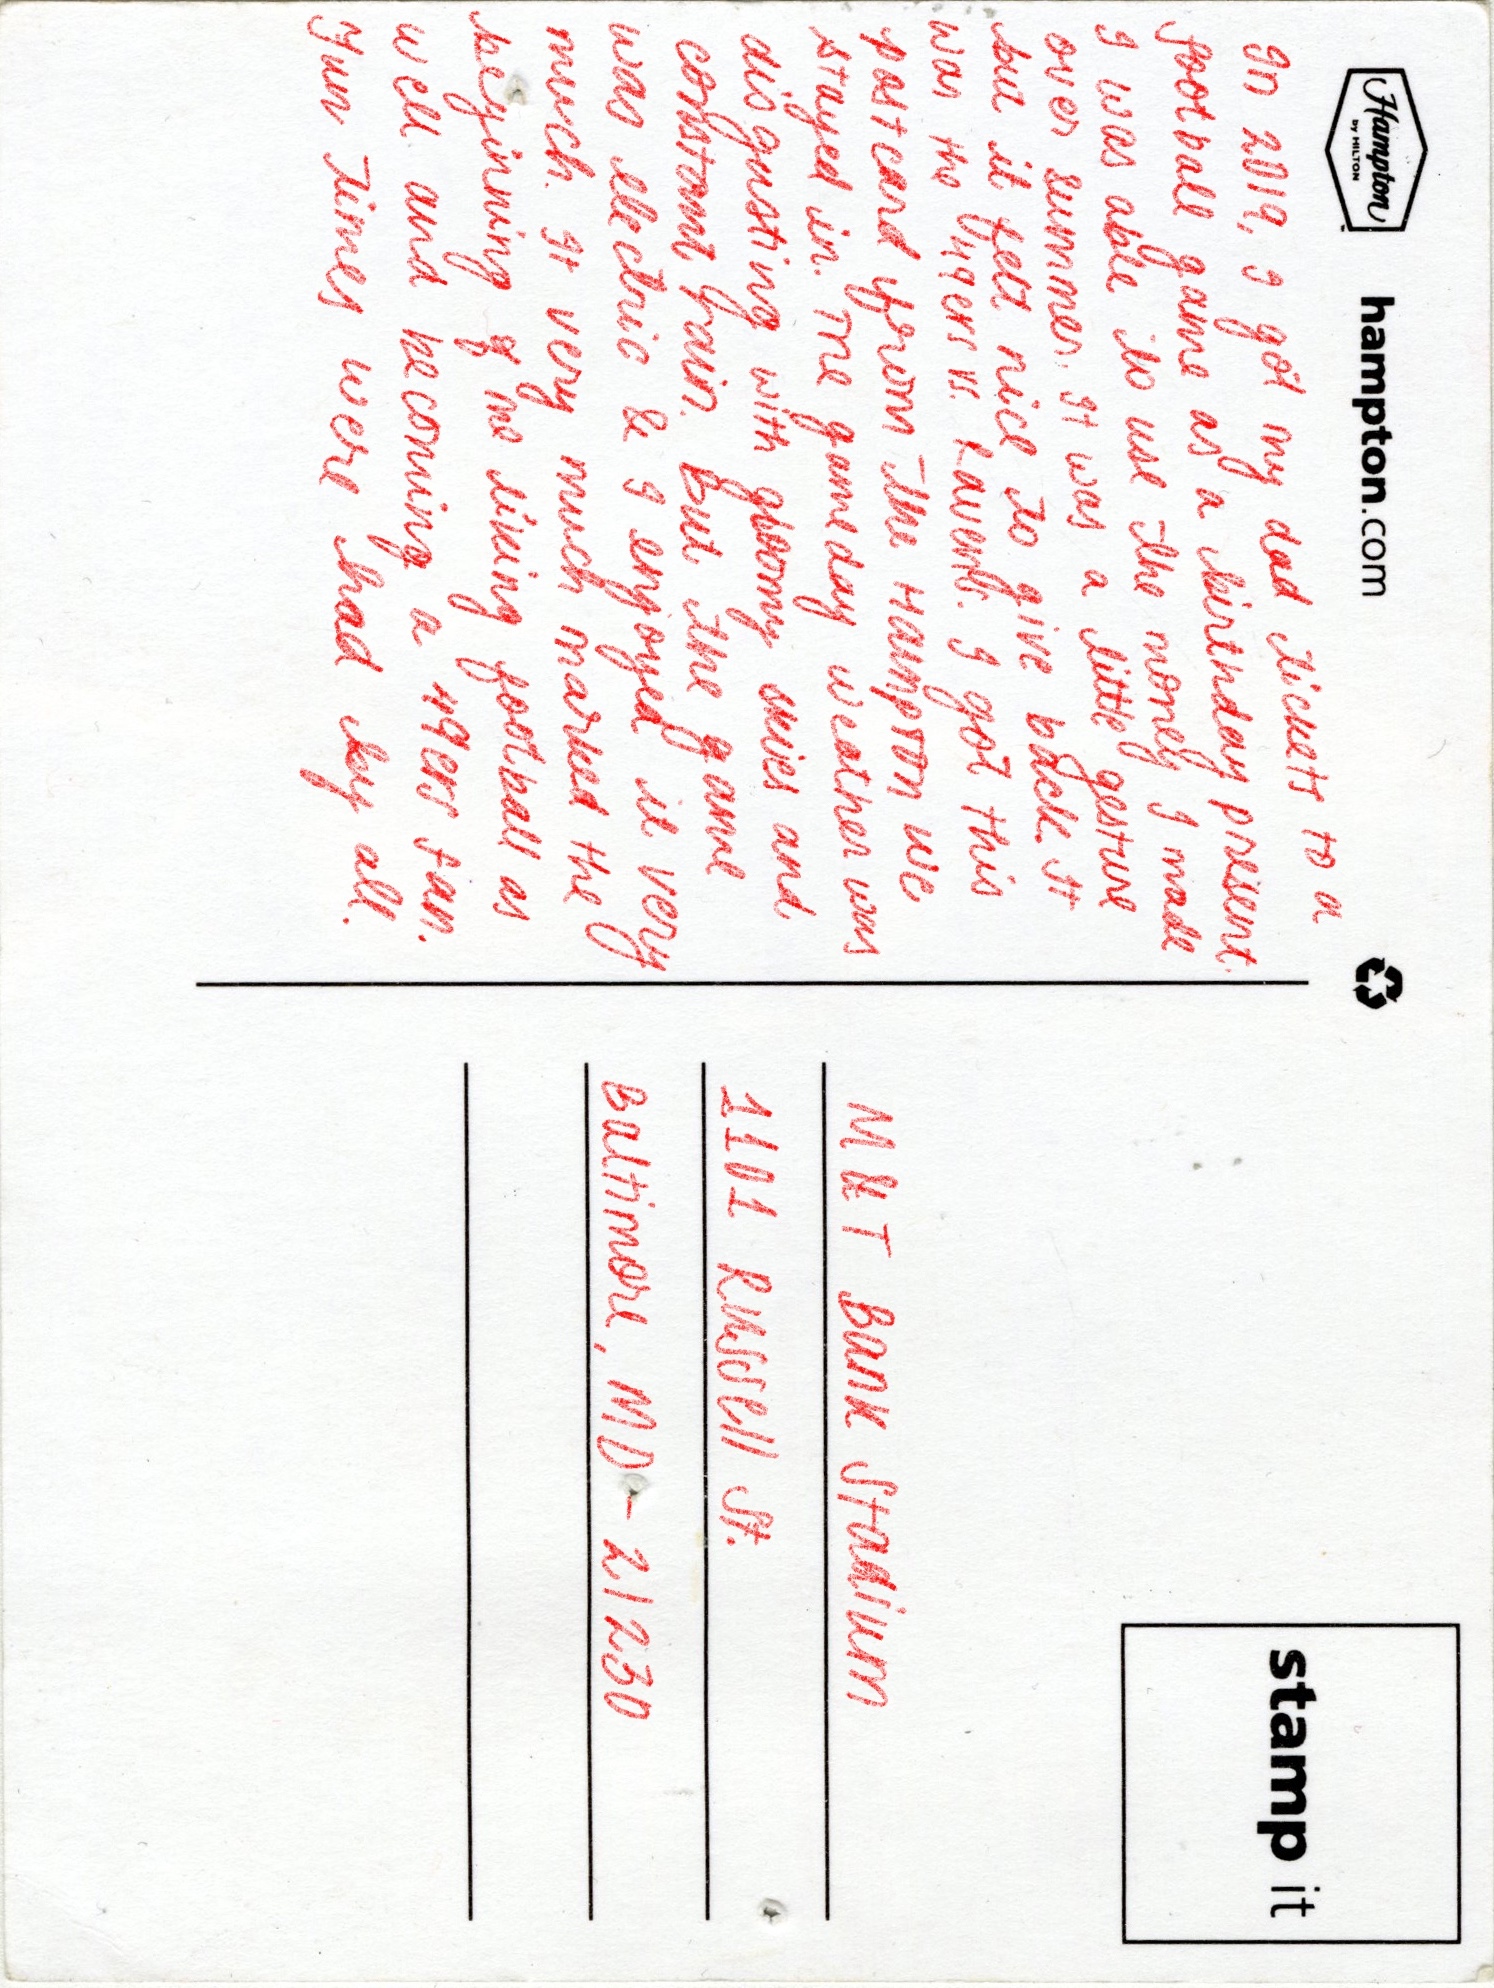 Hampton
by HILTON
hampton.com
In 2019, I got my dad tickets to a
football game as a birthday present.
I was able to use the money I made
over summer. It was a little gesture
but it felt nice to give back. It
was the 49ers vs. Ravens. I got this
postcard from the Hampton we
stayed in. The gameday weather was
disgusting with gloomy skies and
constant rain. But the game
was electric & I enjoyed it very
much. It very much marked the
beginning of me liking football as
well and becoming a 49ers fan.
Fun times were had by all.
M&T Bank Stadium
1101 Russell St.
Baltimore, MD - 21230
stamp it